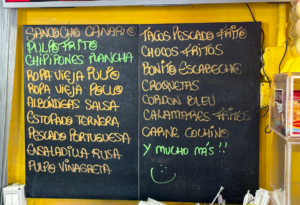 SANCOCHO CANARIO
PULPO FRITO
CHIPIRONES PLANCHA
ROPA VIEJA PULPO
ROPA VIEJA POLLO
ALBÓNDIGAS SALSA
ESTOFADO TERNERA
PESCADO PORTUGUESA
ENSALADILLA RUSA
PULPO VINAGRETA
TACOS PESCADO FRITO
CHOCOS FRITOS
BONITO ESCABECHE
CROQUETAS
CORDON BLEU
CALAMARES FRITOS
CARNE COCHINO
Y MUCHO MÁS!!